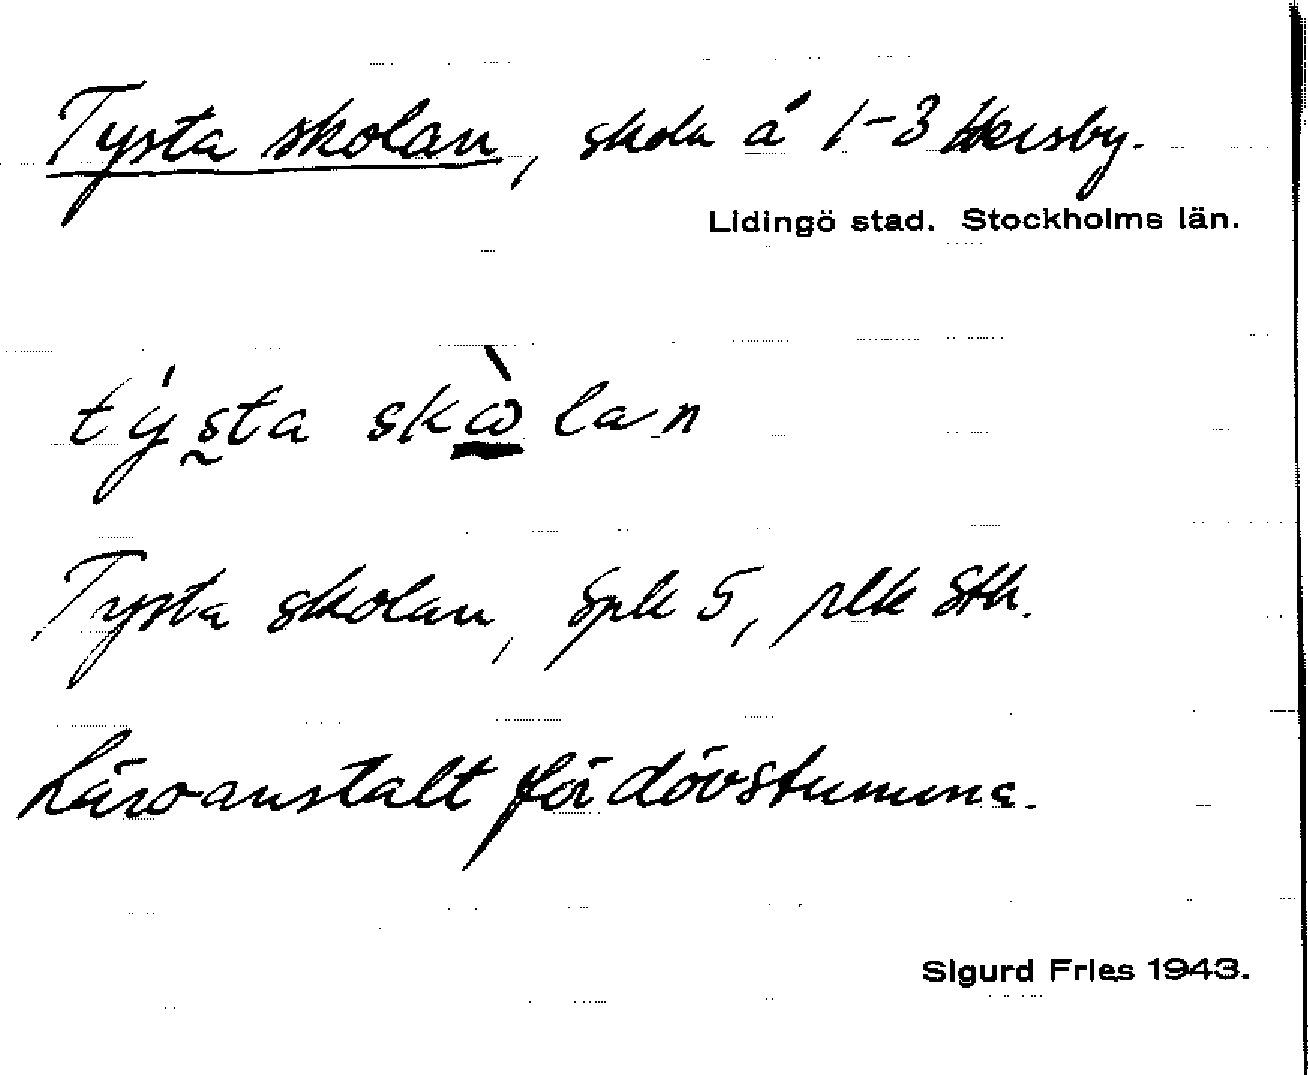 Tysta skolan, skola å 1-3 Hersby.
Lidingö stad. Stockholms län.
týsta skὼlan
Tysta skolan, Spk 5, plk Sth.
Läroanstalt för dövstumma.
Sigurd Fries 1943.